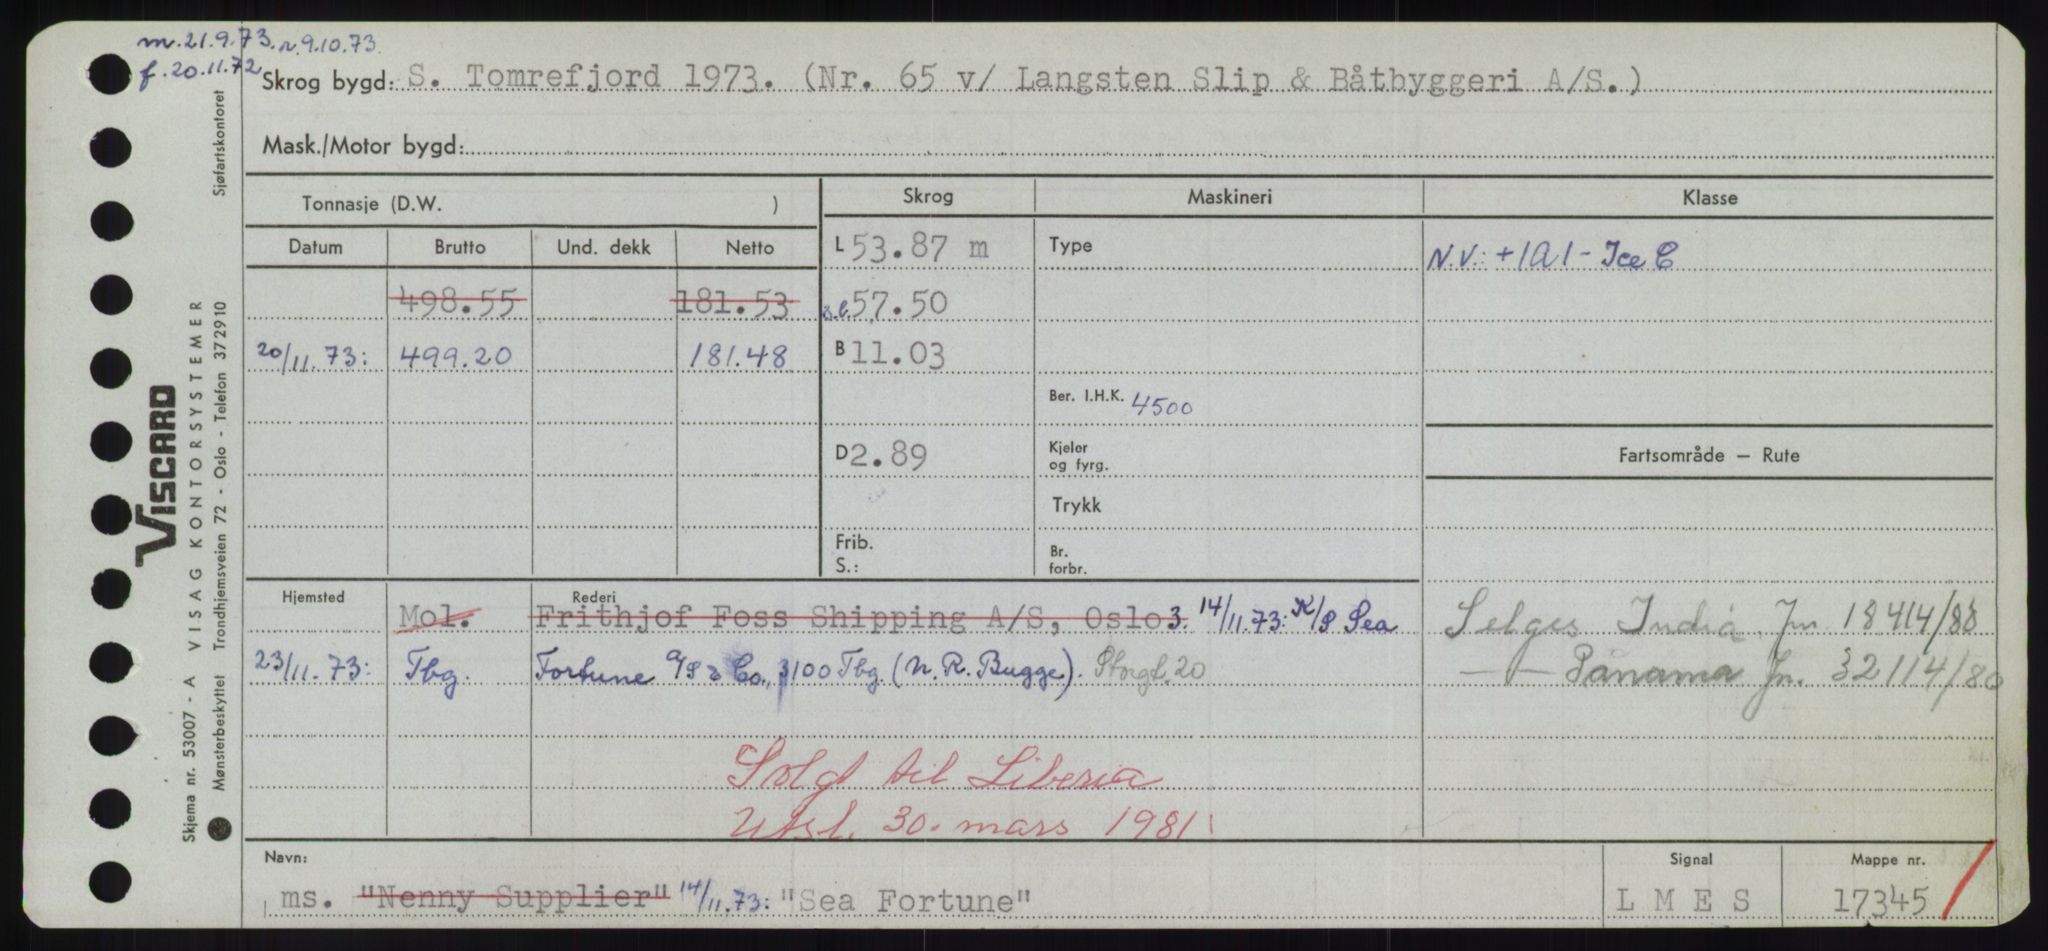 m.21.9.73. n.9.10.73.
f.20.11.72
Skrog bygd: S. Tomrefjord 1973. (Nr. 65 v/ Langsten Slip & Båtbyggeri A/S.)
Mask./Motor bygd:
Tonnasje (D.W. )
Skrog
Maskineri
Klasse
Datum Brutto Und. dekk Netto
L 53.87 m
Type
N.V.: +1A1 - Ice C
498.55 181.53
57.50
20/11.73: 499.20 181.48
B 11.03
Ber. I.H.K. 4500
D 2.89
Kjeler
og fyrg.
Fartsområde — Rute
Trykk
Frib.
S.:
Br.
forbr.
Hjemsted
Rederi
Mol. Frithjof Foss Shipping A/S, Oslo 3. 14/11.73: K/S Sea
23/11.73: Tbg. Fortune A/S & Co., 3100 Tbg. (N.R. Bugge). Storgt. 20
Selges India Jn. 18414/80
— — Panama Jn. 32114/80
Solgt til Liberia
Utsl. 30. mars 1981.
Navn:
ms. "Nenny Supplier" 14/11.73: "Sea Fortune"
Signal
L M E S
Mappe nr.
17345
VISCARD
Skjema nr. 53007 - A VISAG KONTORSYSTEMER
Mønsterbeskyttet Trondhjemsveien 72 - Oslo - Telefon 372910 Sjøfartskontoret